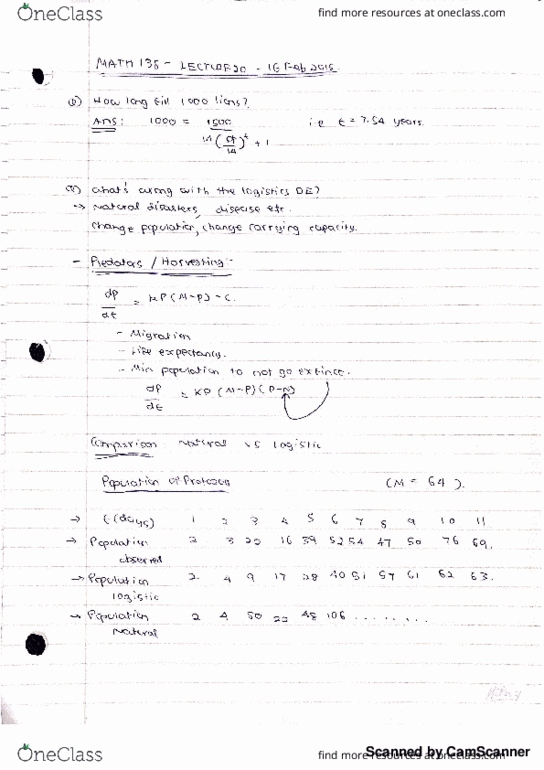 OneClass
find more resources at oneclass.com
MATH 135 - LECTURE 20 - 16 Feb 2015.
Q) How long till 1000 lions?
Ans: 1000 = 1500 / 14(9/14)^t + 1 i.e t = 7.54 years.
Q) What's wrong with the logistics DE?
→ Natural disasters, disease etc.
Change population, change carrying capacity.
- Predators / Harvesting -
dP/dt = KP(M-P) - C.
- Migration
- Life expectancy.
- Min population to not go extinct.
dP/dt = KP(M-P)(P-N)
Comparison Natural vs Logistic
Population of Protozoa (M = 64).
→ t(days) 1 2 3 4 5 6 7 8 9 10 11
→ Population observed 2 3 22 16 39 52 54 47 50 76 69.
→ Population logistic 2 4 9 17 28 40 51 57 61 62 63.
→ Population Natural 2 4 50 22 48 106 . . . . . . .
Hilroy
OneClass
find more resources at oneclass.com
Scanned by CamScanner